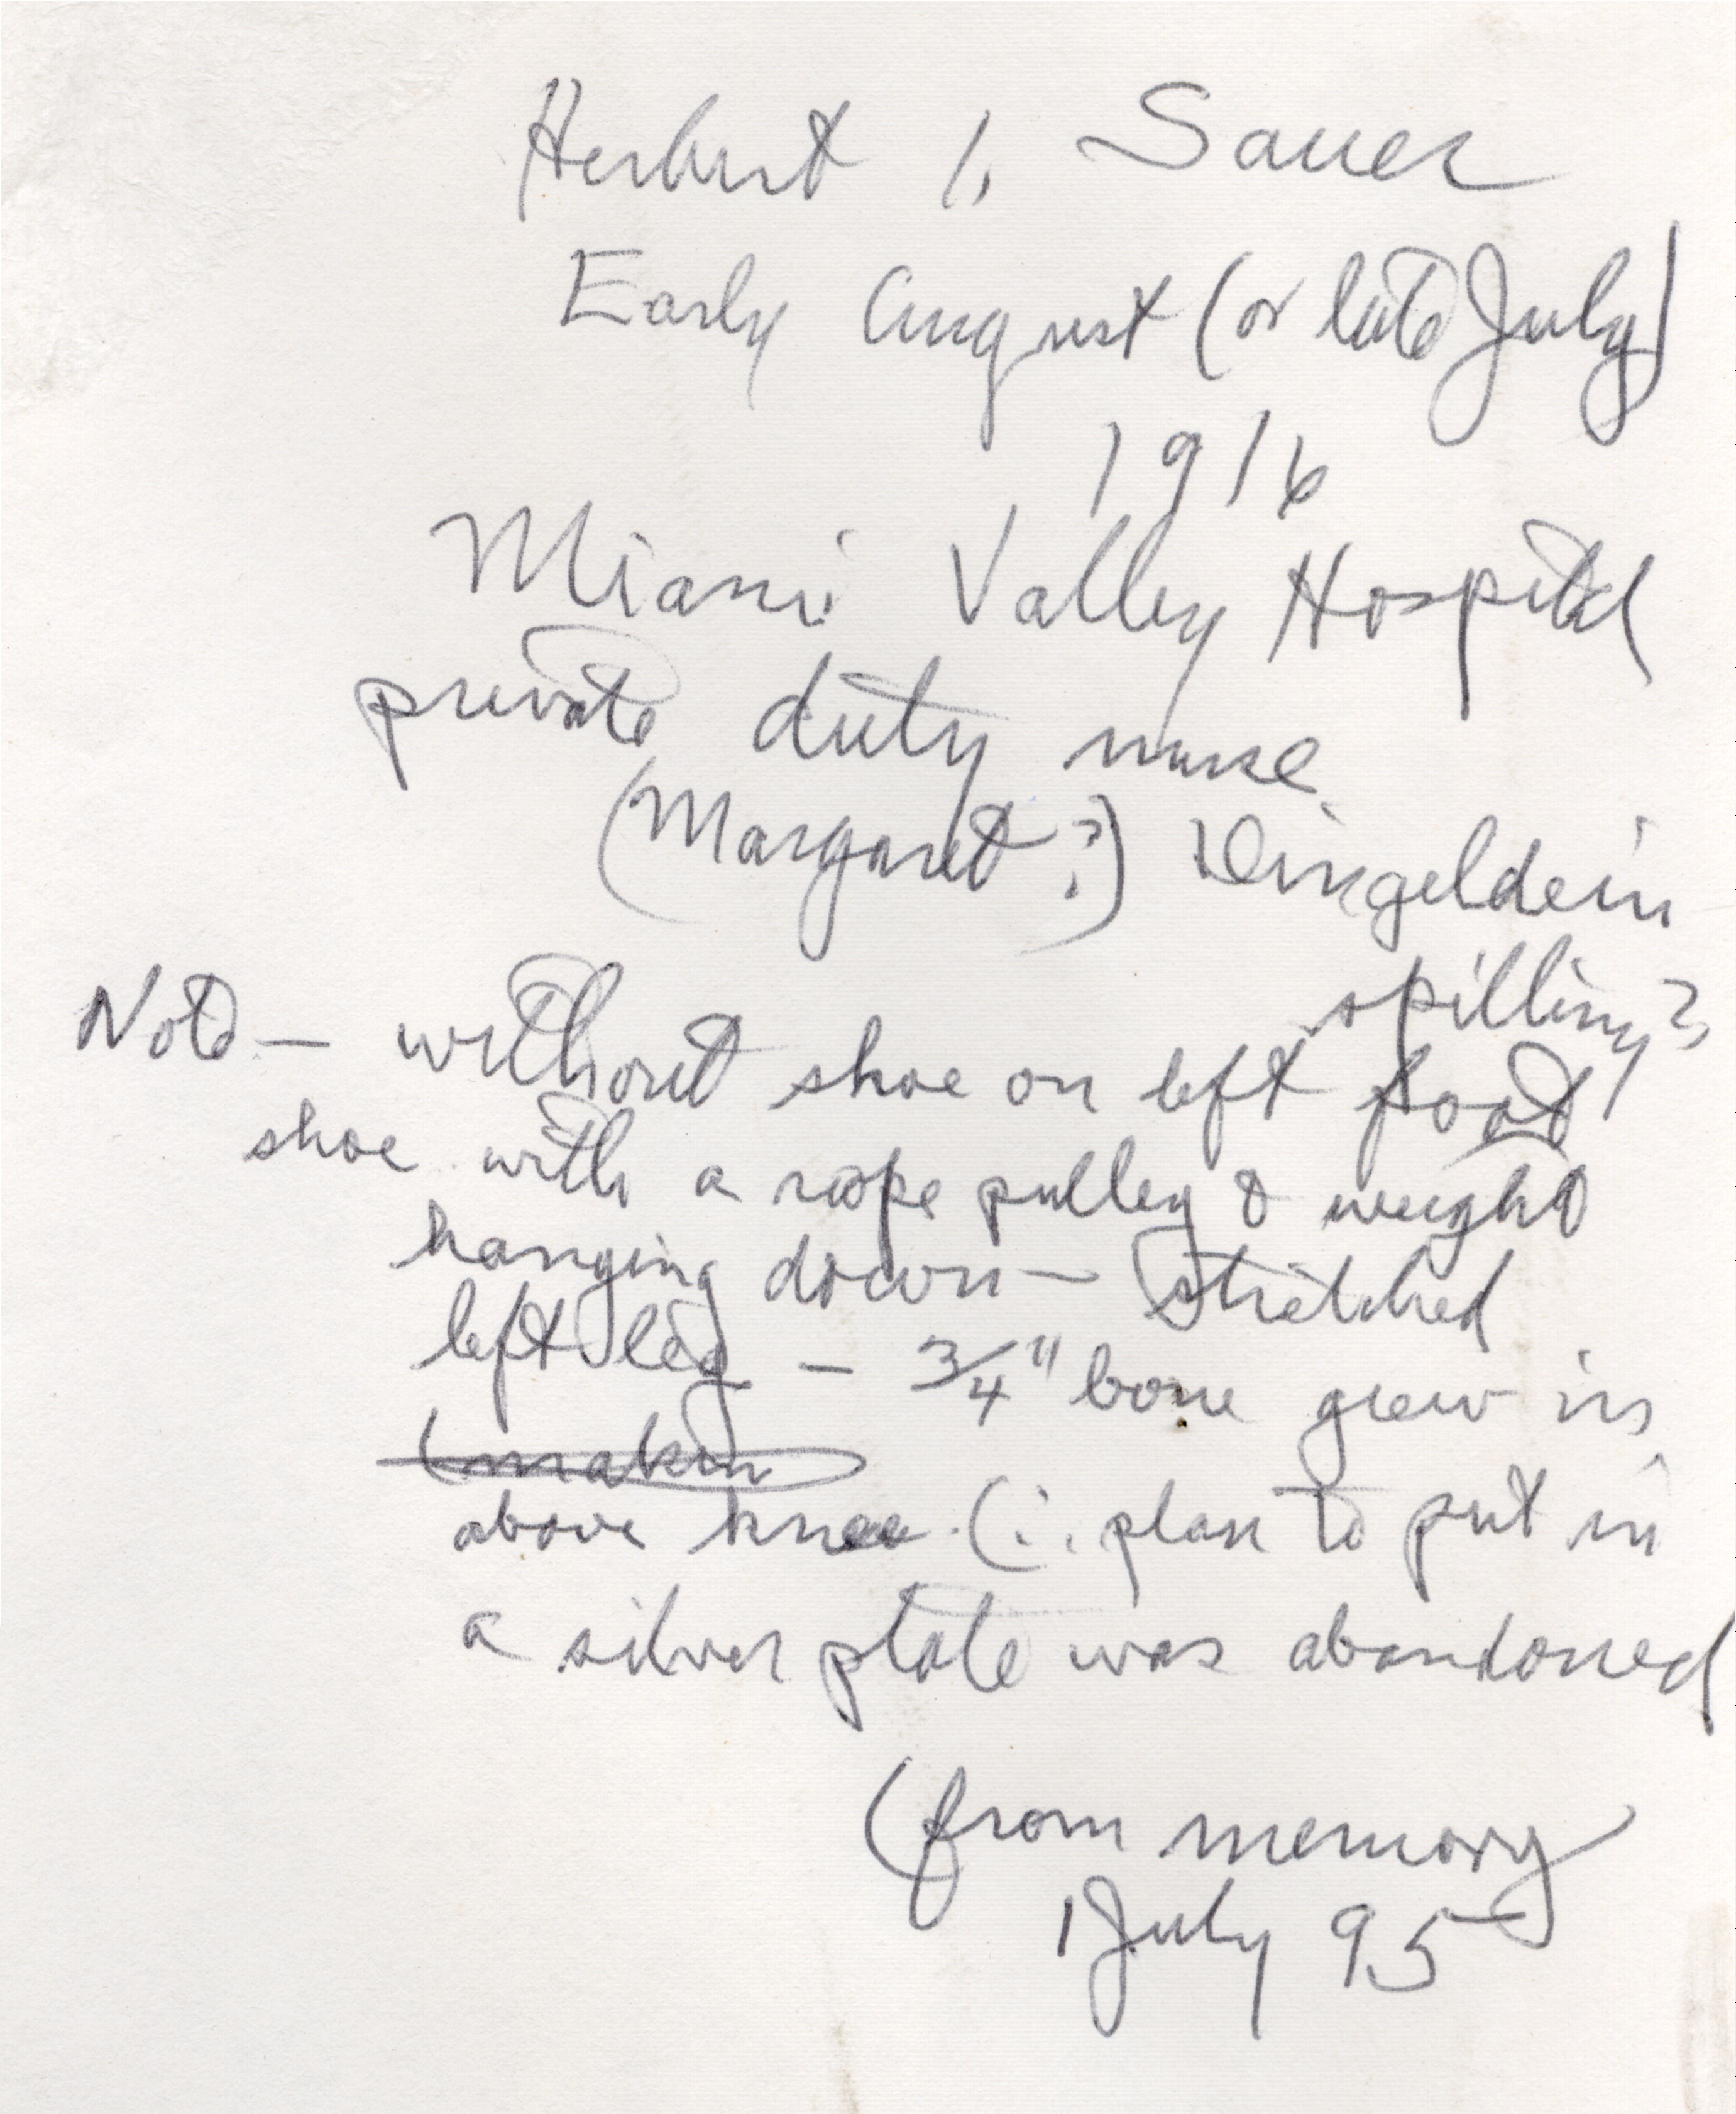 Herbert I. Sauer
Early August (or late July)
1916
Miami Valley Hospital
private duty nurse
(Margaret ?) Dingeldein
spilling?
Note — without shoe on left foot
shoe with a rope pulley & weight
hanging down — stretched
left leg — 3/4" bone grew in
(makin
above knee. (∴ plan to put in
a silver plate was abandoned
(from memory
1 July 95